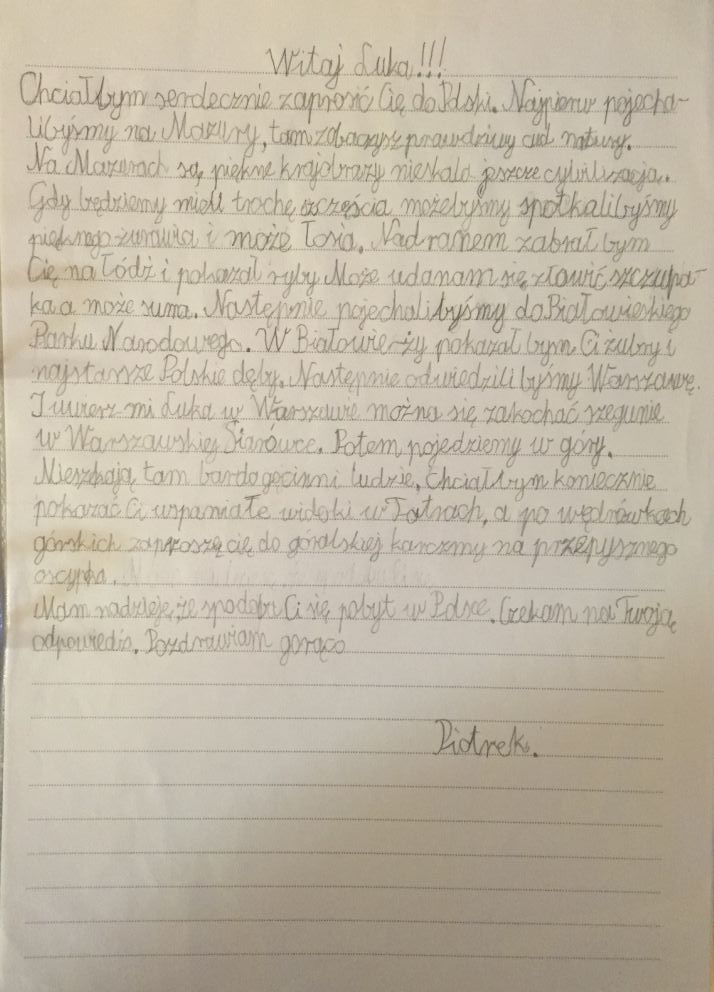 Witaj Luka!!!
Chciałbym serdecznie zaprosić Cię do Polski. Najpierw pojecha-
libyśmy na Mazury, tam zobaczysz prawdziwy cud natury.
Na Mazurach są piękne krajobrazy nieskala jeszcze cywilizacja.
Gdy będziemy mieli trochę szczęścia możebyśmy spotkalibyśmy
pięknego żurawia i może łosia. Nad ranem zabrał bym
Cię na łódź i pokazał ryby Może uda nam się złowić szczupa-
ka a może suma. Następnie pojechalibyśmy do Białowieskiego
Parku Narodowego. W Białowieży pokazał bym Ci żubry i
najstarsze Polskie dęby. Następnie odwiedzili byśmy Warszawę.
I uwierz mi Luka w Warszawie można się zakochać szegulnie
w Warszawskiej Starówce. Potem pojedziemy w góry.
Mieszkają tam bardo gościnni ludzie. Chciałbym koniecznie
pokazać Ci wspaniałe widoki w Tatrach, a po wędrówkach
górskich zaproszę cię do góralskiej karczmy na przepysznego
oscypka.
Mam nadzieję, że spodoba Ci się pobyt w Polsce. Czekam na Twoją
odpowiedź. Pozdrawiam gorąco
Piotrek.